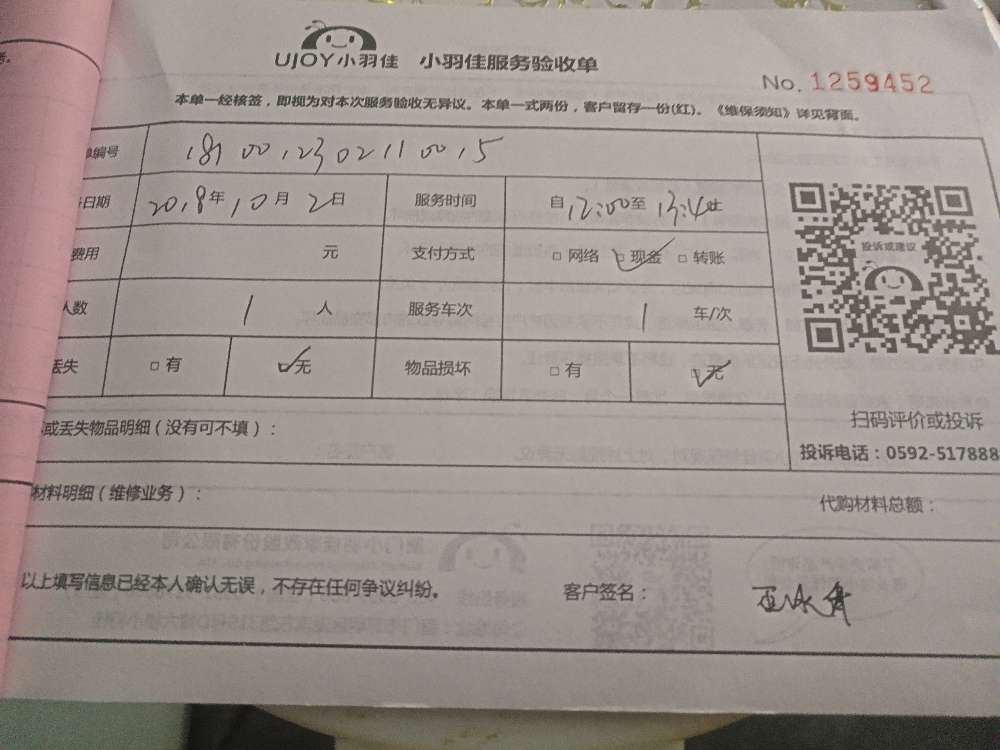 UJOY小羽佳 小羽佳服务验收单
No. 1259452
本单一经核签，即视为对本次服务验收无异议。本单一式两份，客户留存一份(红)。《维保须知》详见背面。
单编号 181001230211 0015
务日期 2018年10月2日 服务时间 自12:00至13:4
费用 元 支付方式 □ 网络 □ 现金 □ 转账
人数 1 人 服务车次 1 车/次
丢失 □ 有 □ 无 物品损坏 □ 有 □ 无
投诉或建议
扫码评价或投诉
投诉电话：0592-517888
或丢失物品明细（没有可不填）：
材料明细（维修业务）： 代购材料总额：
以上填写信息已经本人确认无误，不存在任何争议纠纷。 客户签名：